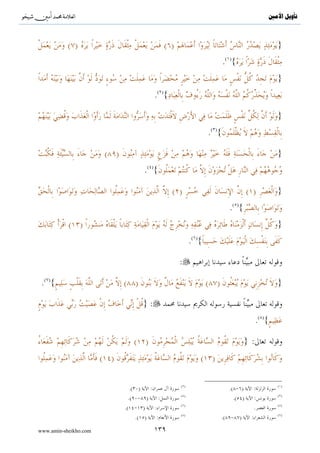 تأويل الأمين
العلامة محمد أمين شيخو
{يَوْمَئِذٍ يَصْدُرُ النَّاسُ أَشْتَاتًا لِيُرَوْا أَعْمَالَهُمْ (٦) فَمَنْ يَعْمَلْ مِثْقَالَ ذَرَّةٍ خَيْرًا يَرَهُ (٧) وَمَنْ يَعْمَلْ
مِثْقَالَ ذَرَّةٍ شَرًّا يَرَهُ}(١).
{يَوْمَ تَجِدُ كُلُّ نَفْسٍ مَا عَمِلَتْ مِنْ خَيْرٍ مُحْضَرًا وَمَا عَمِلَتْ مِنْ سُوءٍ تَوَدُّ لَوْ أَنَّ بَيْنَهَا وَبَيْنَهُ أَمَدًا
بَعِيدًا وَيُحَذِّرُكُمُ اللَّهُ نَفْسَهُ وَاللَّهُ رَءُوفٌ بِالْعِبَادِ}(٢).
{وَلَوْ أَنَّ لِكُلِّ نَفْسٍ ظَلَمَتْ مَا فِي الْأَرْضِ لَافْتَدَتْ بِهِ وَأَسَرُّوا النَّدَامَةَ لَمَّا رَأَوُا الْعَذَابَ وَقُضِيَ بَيْنَهُمْ
بِالْقِسْطِ وَهُمْ لَا يُظْلَمُونَ}(٣).
{مَنْ جَاءَ بِالْحَسَنَةِ فَلَهُ خَيْرٌ مِنْهَا وَهُمْ مِنْ فَزَعٍ يَوْمَئِذٍ آمِنُونَ (٨٩) وَمَنْ جَاءَ بِالسَّيِّئَةِ فَكُبَّتْ
وُجُوهُهُمْ فِي النَّارِ هَلْ تُجْزَوْنَ إِلَّا مَا كُنْتُمْ تَعْمَلُونَ}(٤).
{وَالْعَصْرِ (١) إِنَّ الْإِنْسَانَ لَفِي خُسْرٍ (٢) إِلَّا الَّذِينَ آمَنُوا وَعَمِلُوا الصَّالِحَاتِ وَتَوَاصَوْا بِالْحَقِّ
وَتَوَاصَوْا بِالصَّبْرِ}(٥).
{وَكُلَّ إِنْسَانٍ أَلْزَمْنَاهُ طَائِرَهُ فِي عُنُقِهِ وَنُخْرِجُ لَهُ يَوْمَ الْقِيَامَةِ كِتَابًا يَلْقَاهُ مَنْشُورًا (١٣) اقْرَأْ كِتَابَكَ
كَفَى بِنَفْسِكَ الْيَوْمَ عَلَيْكَ حَسِيبًا}(٦).
وقوله تعالى مبيِّناً دعاء سيدنا إبراهيم ﷺ:
{وَلَا تُخْزِنِي يَوْمَ يُبْعَثُونَ (٨٧) يَوْمَ لَا يَنْفَعُ مَالٌ وَلَا بَنُونَ (٨٨) إِلَّا مَنْ أَتَى اللَّهَ بِقَلْبٍ سَلِيمٍ}(٧).
وقوله تعالى مبيِّناً نفسية رسوله الكريم سيدنا محمد ﷺ: {قُلْ إِنِّي أَخَافُ إِنْ عَصَيْتُ رَبِّي عَذَابَ يَوْمٍ
عَظِيمٍ}(٨).
وقوله تعالى: {وَيَوْمَ تَقُومُ السَّاعَةُ يُبْلِسُ الْمُجْرِمُونَ (١٢) وَلَمْ يَكُنْ لَهُمْ مِنْ شُرَكَائِهِمْ شُفَعَاءُ
وَكَانُوا بِشُرَكَائِهِمْ كَافِرِينَ (١٣) وَيَوْمَ تَقُومُ السَّاعَةُ يَوْمَئِذٍ يَتَفَرَّقُونَ (١٤) فَأَمَّا الَّذِينَ آمَنُوا وَعَمِلُوا
(١) سورة الزلزلة: الآية (٦-٨).
(٢) سورة آل عمران: الآية (٣٠).
(٣) سورة يونس: الآية (٥٤).
(٤) سورة النمل: الآية (٨٩-٩٠).
(٥) سورة العصر.
(٦) سورة الإسراء: الآية (١٣-١٤).
(٧) سورة الشعراء: الآية (٨٧-٨٩).
(٨) سورة الأنعام: الآية (١٥).
١٣٩
www.amin-sheikho.com